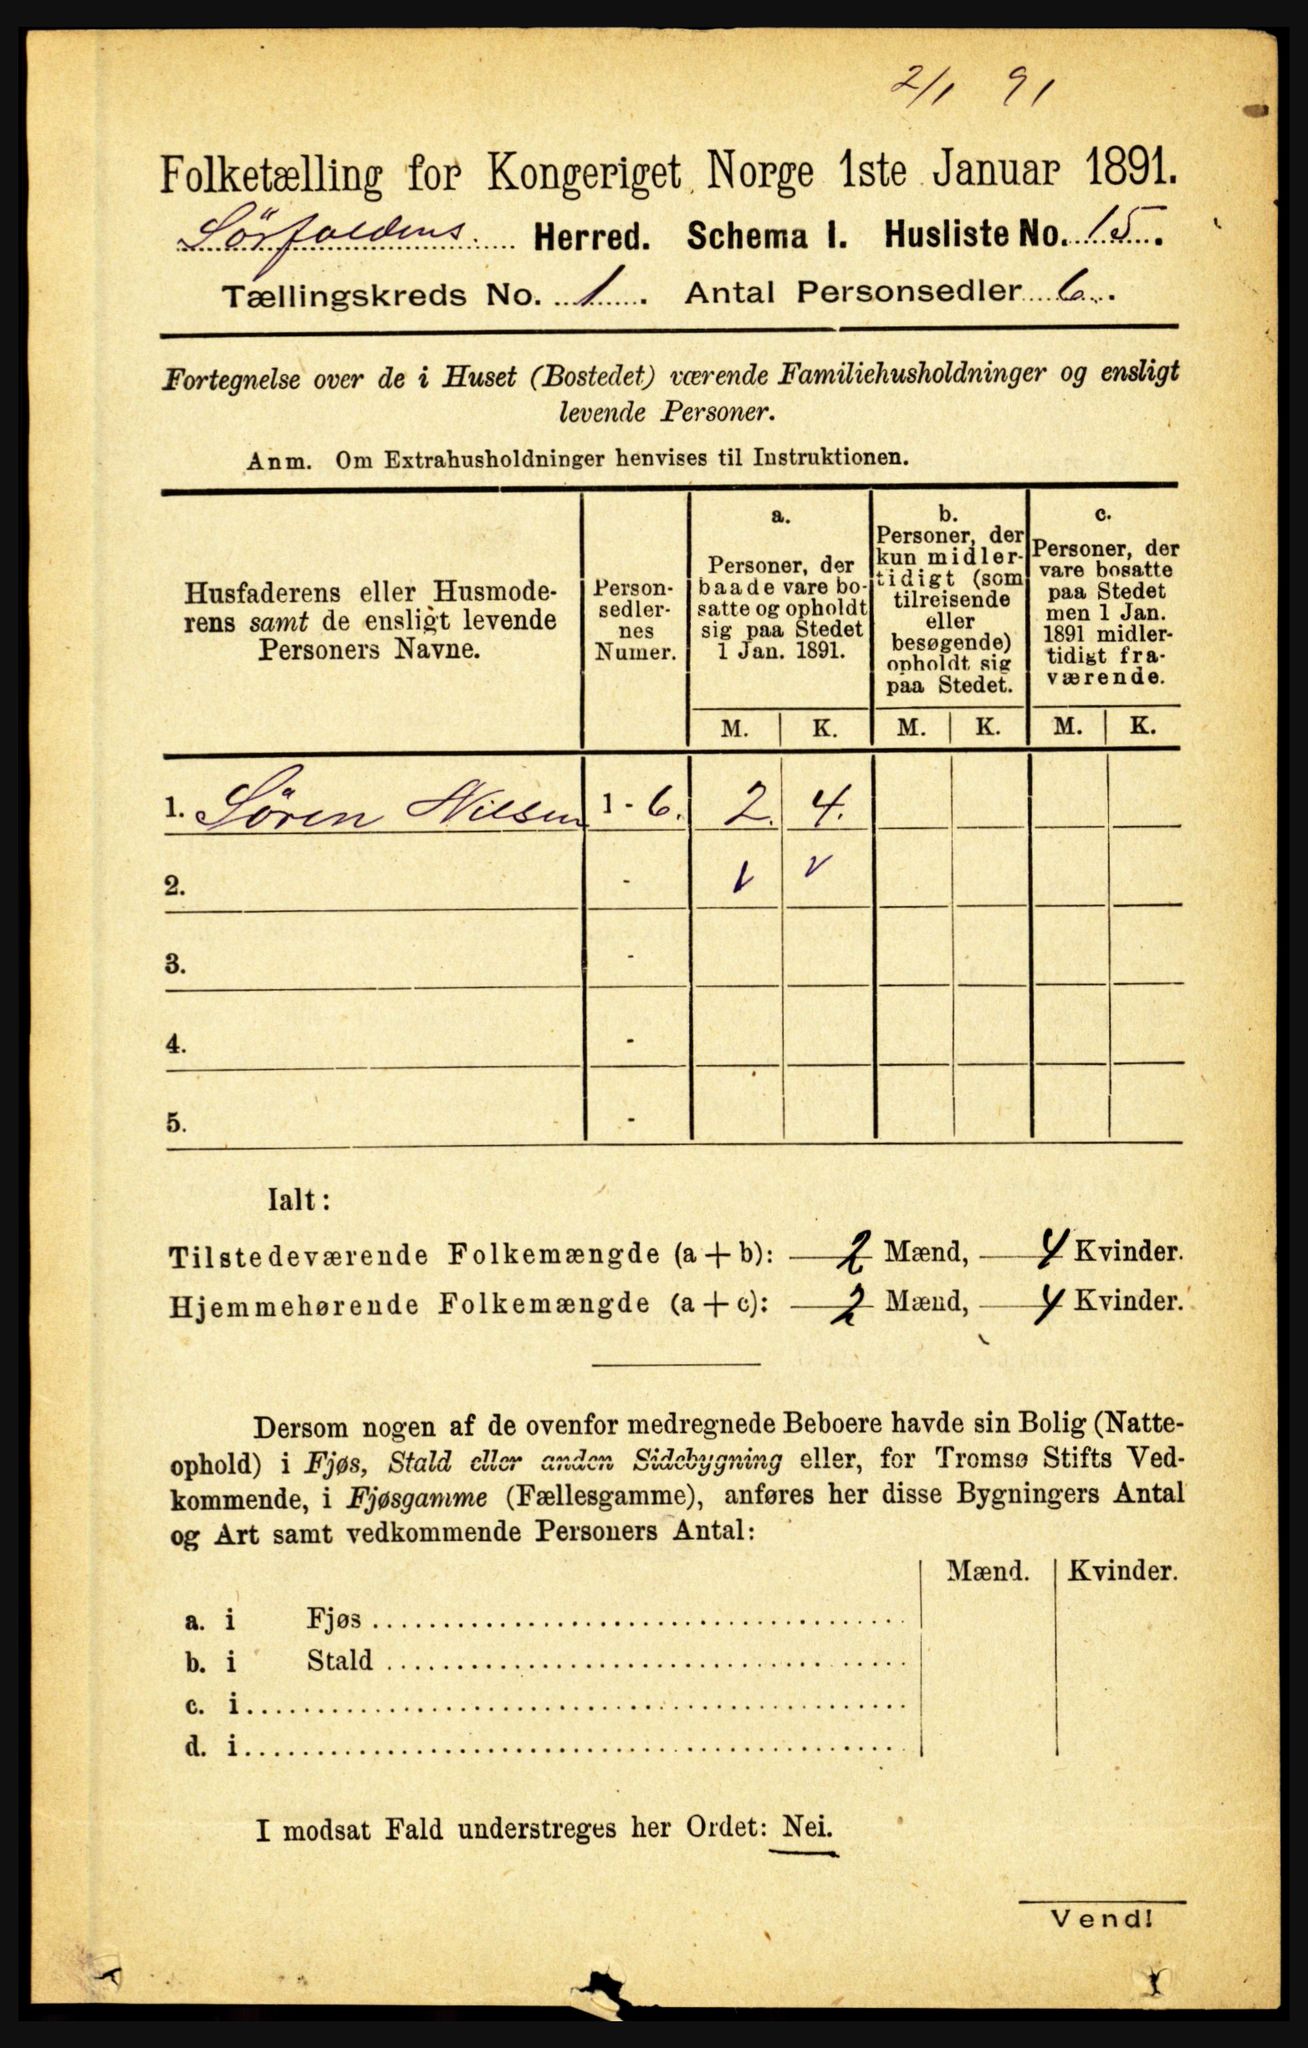 2/1 91
Folketælling for Kongeriget Norge 1ste Januar 1891.
Sörfoldens Herred. Schema I. Husliste No. 15.
Tællingskreds No. 1. Antal Personsedler 6.
Fortegnelse over de i Huset (Bostedet) værende Familiehusholdninger og ensligt
levende Personer.
Anm. Om Extrahusholdninger henvises til Instruktionen.
Husfaderens eller Husmode-
rens samt de ensligt levende
Personers Navne.
Person-
sedler-
nes
Numer.
a.
Personer, der
baade vare bo-
satte og opholdt
sig paa Stedet
1 Jan. 1891.
b.
Personer, der
kun midler-
tidigt (som
tilreisende
eller
besøgende)
opholdt sig
paa Stedet.
c.
Personer, der
vare bosatte
paa Stedet
men 1 Jan.
1891 midler-
tidigt fra-
værende.
M. K. M. K. M. K.
1. Sören Nilsen 1 - 6. 2. 4.
2. - v v
3. -
4. -
5. -
Ialt:
Tilstedeværende Folkemængde (a + b): 2 Mænd, 4 Kvinder.
Hjemmehørende Folkemængde (a + c): 2 Mænd, 4 Kvinder.
Dersom nogen af de ovenfor medregnede Beboere havde sin Bolig (Natte-
ophold) i Fjøs, Stald eller anden Sidebygning eller, for Tromsø Stifts Ved-
kommende, i Fjøsgamme (Fællesgamme), anføres her disse Bygningers Antal
og Art samt vedkommende Personers Antal:
Mænd. Kvinder.
a. i Fjøs
b. i Stald
c. i
d. i
I modsat Fald understreges her Ordet: Nei.
Vend!